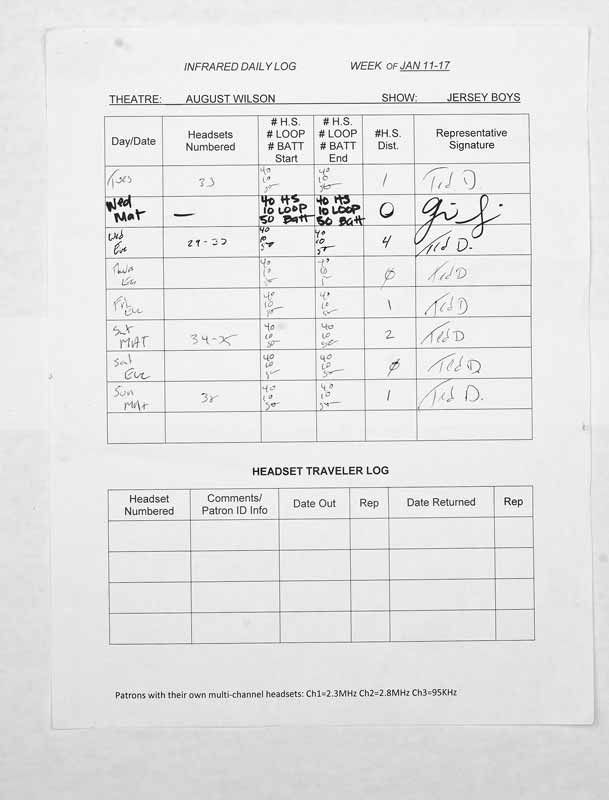 INFRARED DAILY LOG WEEK OF JAN 11-17
THEATRE: AUGUST WILSON SHOW: JERSEY BOYS
Day/Date Headsets Numbered # H.S. # LOOP # BATT Start # H.S. # LOOP # BATT End #H.S. Dist. Representative Signature
Tues 40 10 50 40 10 50 1 Ted D
Wed Mat — 40 HS 10 LOOP 50 Batt 40 HS 10 LOOP 50 Batt 0
Wed Eve 29-32 40 10 50 40 10 50 4 Ted D.
Thur Eve 40 10 40 10 Ø Ted D
Fri Eve 40 10 50 40 10 50 1 Ted D
Sat MAT 34-35 40 10 50 40 10 50 2 Ted D
Sat Eve 40 10 40 10 Ø Ted D
Sun MAt 40 10 50 40 10 50 1 Ted D.
HEADSET TRAVELER LOG
Headset Numbered Comments/ Patron ID Info Date Out Rep Date Returned Rep
Patrons with their own multi-channel headsets: Ch1=2.3MHz Ch2=2.8MHz Ch3=95KHz